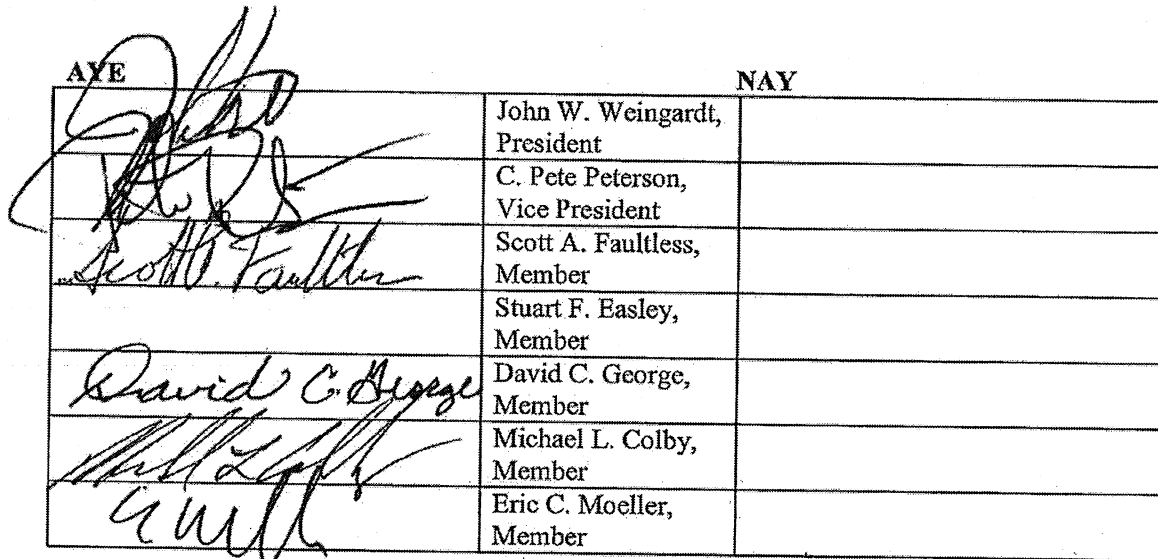 AYE NAY
John W. Weingardt,
President
C. Pete Peterson,
Vice President
Scott A. Faultless,
Member
Stuart F. Easley,
Member
David C. George David C. George,
Member
Michael L. Colby,
Member
Eric C. Moeller,
Member